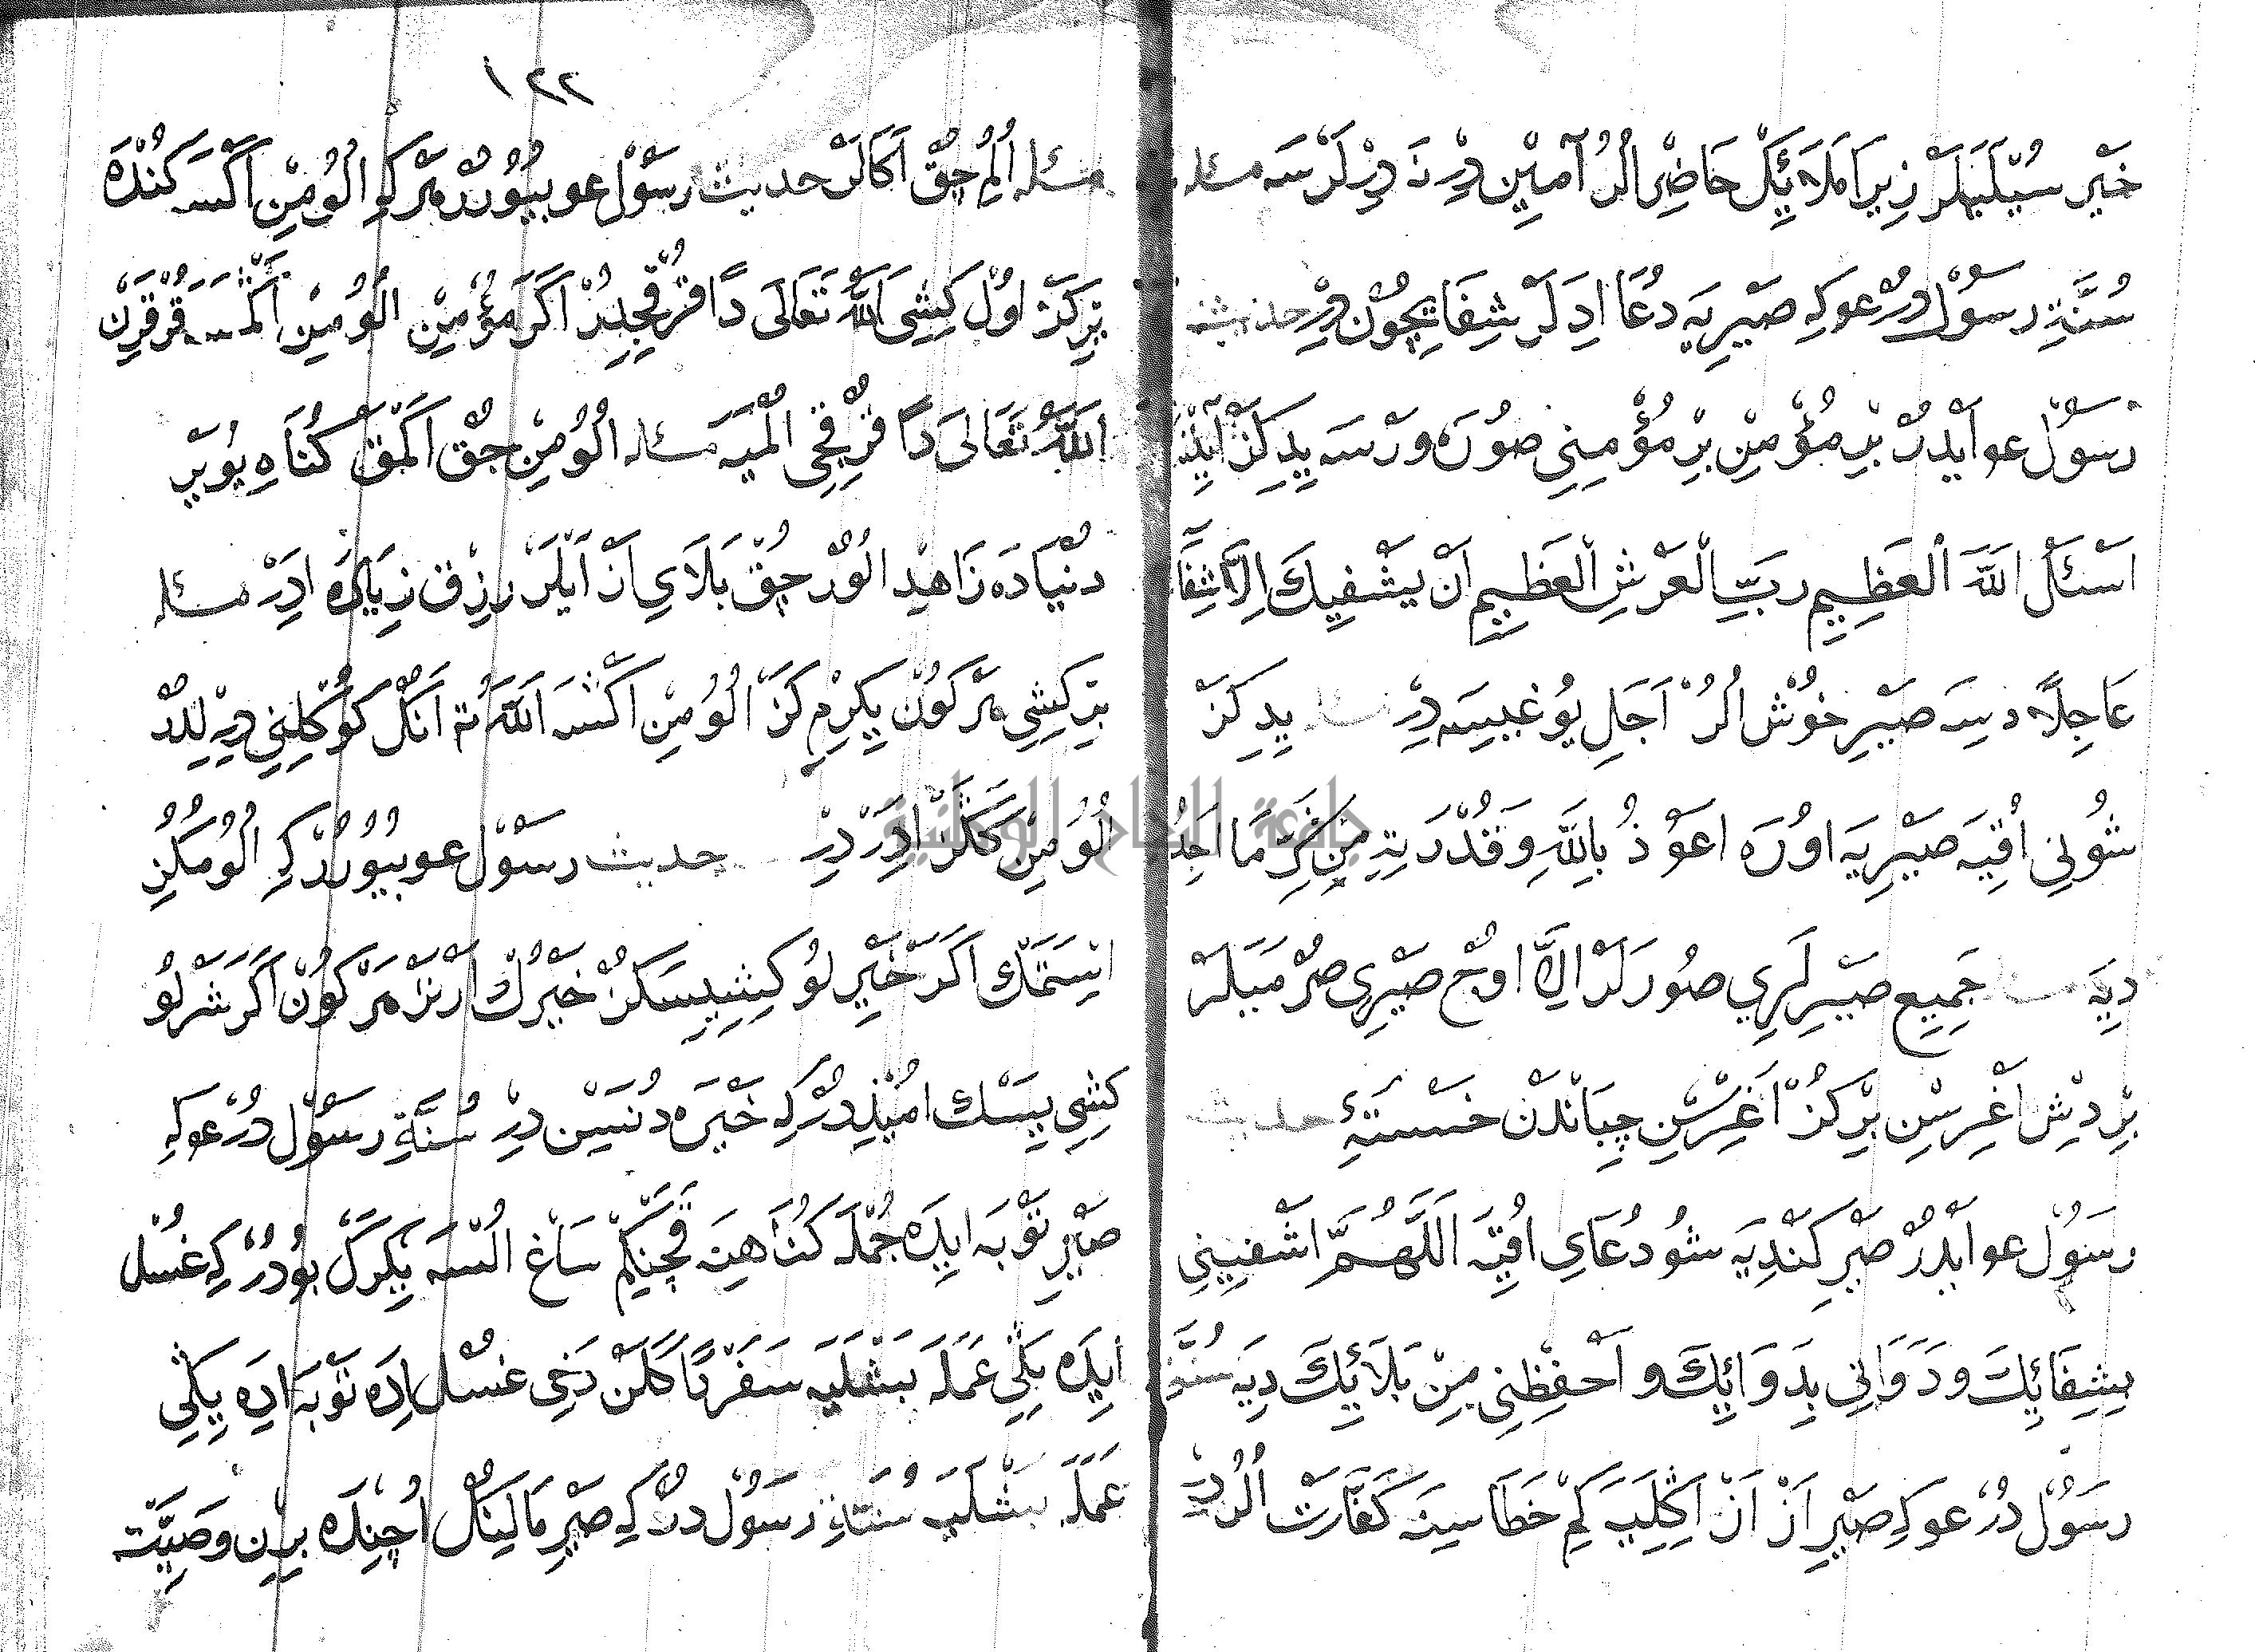 خَيْرِ سُيْلَيَلَرْ زِيرَا مَلَائِكَلْ حَاضِرْ اُلُرْ آمِينْ دِرْ نَه دِرْلَرْسَه مسئله
سُنَّةِ رسُوْل دُرْ عو كِه صَيْرِيَه دُعَا ادَلَرْ شِفَا اِيچُوْن دِرْ حديث
رَسُوْل عو اَيْدُرْ بِرْ مُؤْمِنْ بِرْ مُؤْمِنِي صُورَه وَرْسَه يِدِ كَزْ
اَسْئَلُ اللّٰهَ الْعَظِيمِ رَبِّ الْعَرْشِ الْعَظِيمِ اَنْ يَشْفِيكَ اِلَّا شِفَا
عَاجِلًا دِسَه صَيْرِ خُوْش اُلُرْ اَجَلِ يُوْغِيسَه دِرْ مسئله يِدِ كَزْ
شُونِي اُقِيَه صَيْرِيَه اوُرَه اعَوْذُ بِاللّٰهِ وَقُدْرَتِهِ مِنْ شَرِّ مَا اَجِدُ
دِيَه مسئله جَمِيعِ صَيْرِلَرِي صُورَلَرْ اِلَّا اوُچ صَيْرِي صُرْمَيَلَرْ
بِرْ دِيش اَغْرِسِنْ بِرْ كُزْ اَغْرِسِنْ چِبَانْدَنْ خَسْتَه حديث
رسَوُل عو اَيْدُرْ صَيْرِ كَنْدِيَه شُو دُعَايِ اُقِيَه اَللّٰهُمَّ اشْفِينِي
بِشِفَائِكَ وَدَوَانِي بِدَوَائِكَ وَاَحْفِظْنِي مِنْ بَلَائِكَ دِيَه سُنَّة
رسَوُل دُرْ عو كِه صَيْرِ اَزْ اَنْ اِكْلِيَه كِمْ خَطَاسِينَه كَفَّارَتْ اُلُرْ دِرْ
١٢٢
مسئله اُلُمْ چُقْ اَكَالَرْ حديث رَسُوْل عو بُيُورُرْ هَرْ كِه اُلُومِنْ اَكْسَه كُنْدَه
بِرْ كَزْ اوُل كِشِي اللّٰهُ تَعَالَى دَا قُرْقِجِيدُرْ اَكَرْ مُؤْمِنْ اُلُومِنْ اَكْمَسَه قُرْقَرِنْ
اللّٰهُ تَعَالَى دَا قُرْقِجِي اُلْمَيَه مسئله اُلُومِنْ چُقْ اَكْمَقْ كُنَاهِ يُويَرْ
دُنْيَادَه زَاهِدْ اُلُوْرْ چُقْ بَلَايِ اَزْ اَيْلَرْ رِزْق زِيَادَه ادَرْ مسئله
بِرْ كِشِي هَرْ كُوْن يِكِرْمِ كَزْ اُلُومِنْ اَكْسَه اللّٰه تع اَنُكْ كُوكْلِنِي دِرْلِدُرْ
اُلُومِنْ كَكْلَرْ ادَرْ دِرْ حديث رسَوْل عو بُيُورُرْ كِه اُلُومُكُزِ
اِسْتَمَكْ اَكَرْ خَيْرِلُو كِشِيسَكُزْ خَيْرُكْ اَرْتَرْ هَرْ كُوْن اَكَرْ شَرْلُو
كِشِيسَكْ اُمِيذِدُرْ كِه خَيْرَه دُنَسِنْ دِرْ سُنَّةِ رسَوُل دُرْ عو كِه
صَيْرِ تَوْبَه ايِدَه جُمْلَه كُنَاهِنَه قَچَنْكِمْ سَاغ اُلْسَه يِكْرَكْ بُودُرْ كِه غُسُل
ايِدَه يِكِي عَمَلَه بَشْلَيَه سَفَرْدَا كَلَنْ دَخِي غُسُل ادَه تَوْبَه ادَه يِكِي
عَمَلَه بَشْلَيَه سُنَّةِ رسَوُل دُرْ كِه صَيْرِ مَالِنُكْ اُچِنْدَه بِرِينْ وَصِيَّتْ